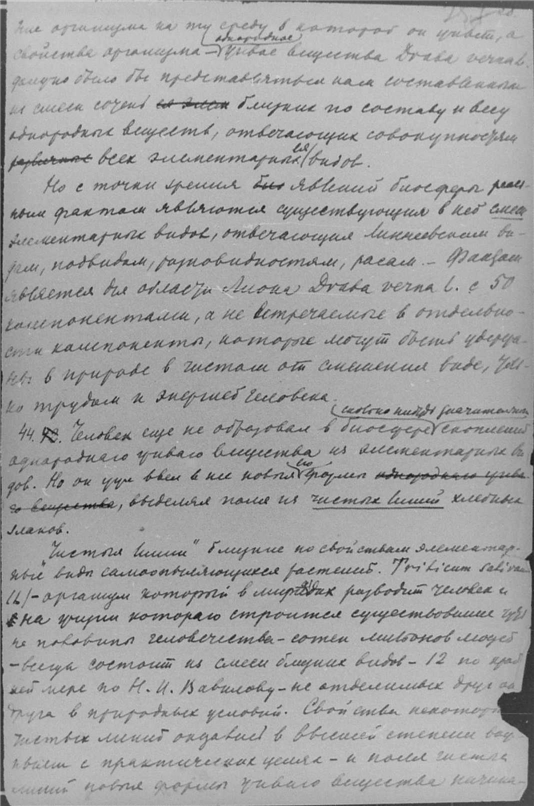 ние организма на ту среду в которой он живет, а
однородное
свойства организма – живое вещества Draba verna L.
должно было бы представляться нам составленным
из смеси очень близких по составу и весу
однородных веществ, отвечающих совокупностям
всех элементарных ея видов.
Но с точки зрения явлений биосферы реаль-
ными фактами являются существующия в ней смеси
элементарных видов, отвечающия Линнеевским ви-
дам, подвидам, разновидностям, расам. – Фактом
является для области Лиона Draba verna L. с 50
компонентами, а не встречаемые в отдельно-
сти компоненты, которые могут быть удержа-
ны в природе в чистом от смешения виде, толь-
ко трудом и энергией человека.
сколько нибудь значительных
44. Человек еще не образовал в биосфере скоплений
однороднаго живого вещества из элементарных ви-
дов. Но он уже ввел в нее новыя его формы однороднаго живо-
го вещества, выделяя поля из чистых линий хлебных
злаков.
"Чистыя линии" близкие по свойствам элементар-
ные виды самоопыляющихся растений. Triticum sativum
(L) – организм который в миріадах разводит человек и
на жизни котораго строится существование чуть
не половины человечества – сотен миллионов людей
– всегда состоит из смеси близких видов – 12 по край-
ней мере по Н. И. Вавилову – не отделимых друг от
друга в природных условий. Свойства некоторых
чистых линий оказались в высшей степени важ-
ными с практических – и поля чистых
линий новые формы живого вещества начина-